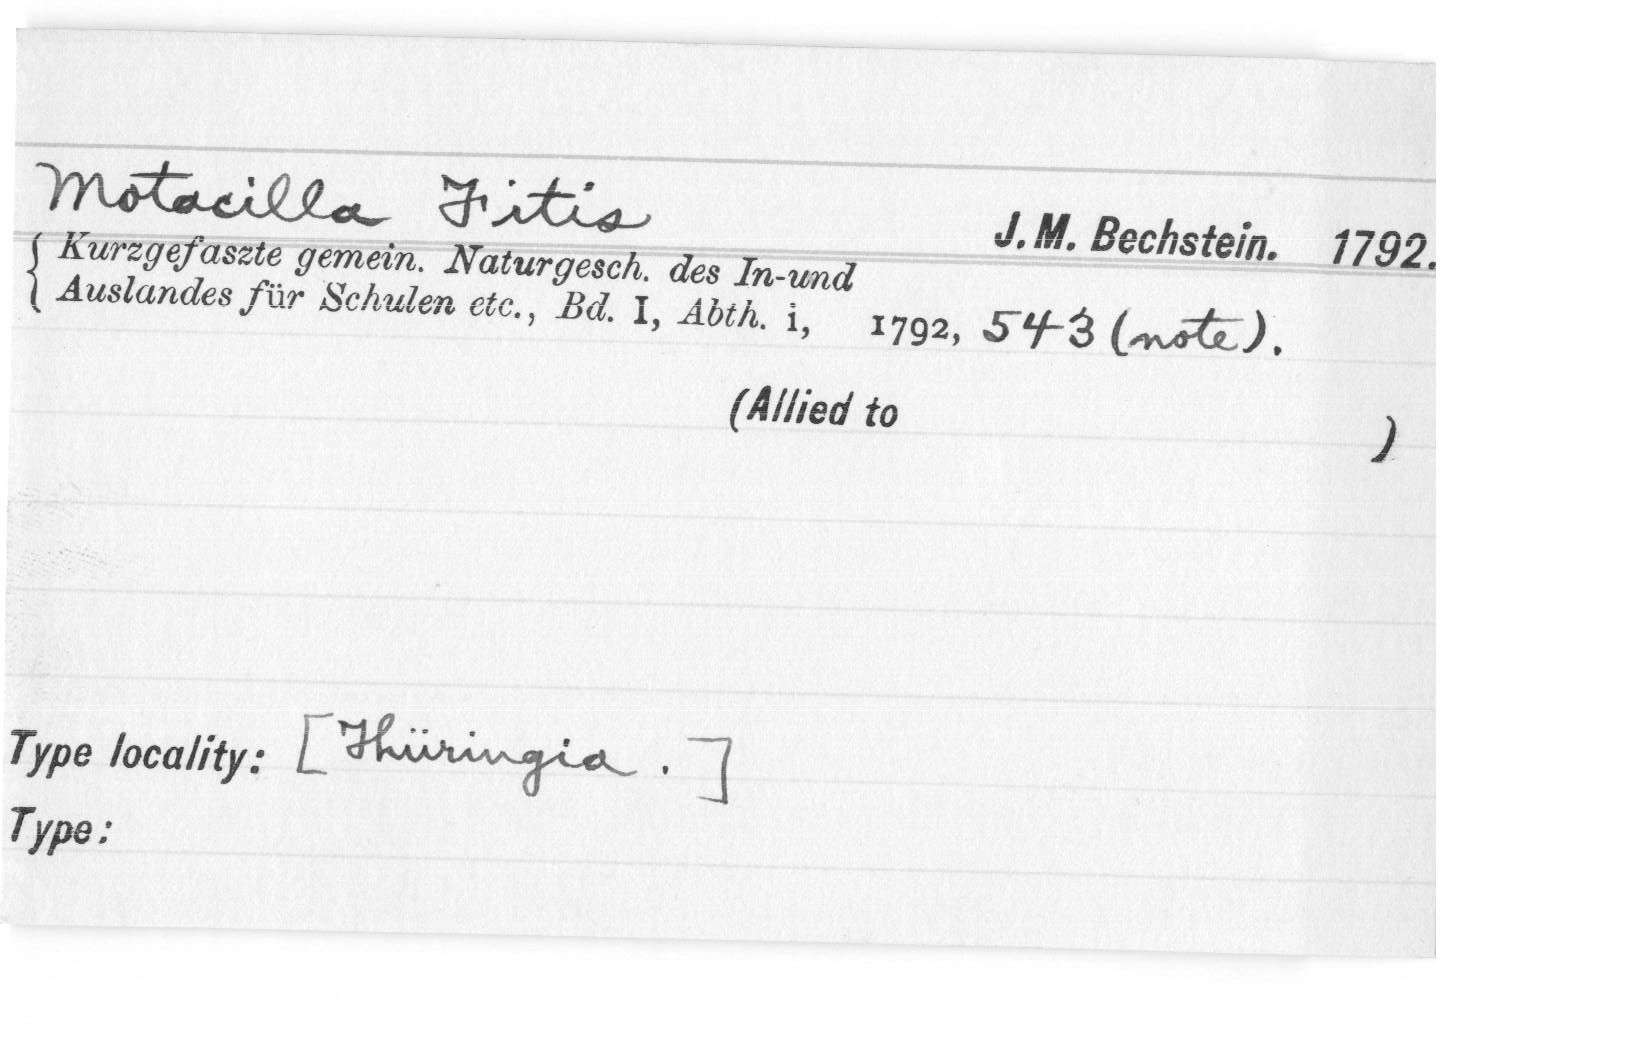 Motacilla Fitis
J. M. Bechstein. 1792.
Kurzgefaszte gemein. Naturgesch. des In-und
Auslandes für Schulen etc., Bd. I, Abth. i, 1792, 543 (note).
(Allied to )
Type locality: [Thüringia.]
Type: